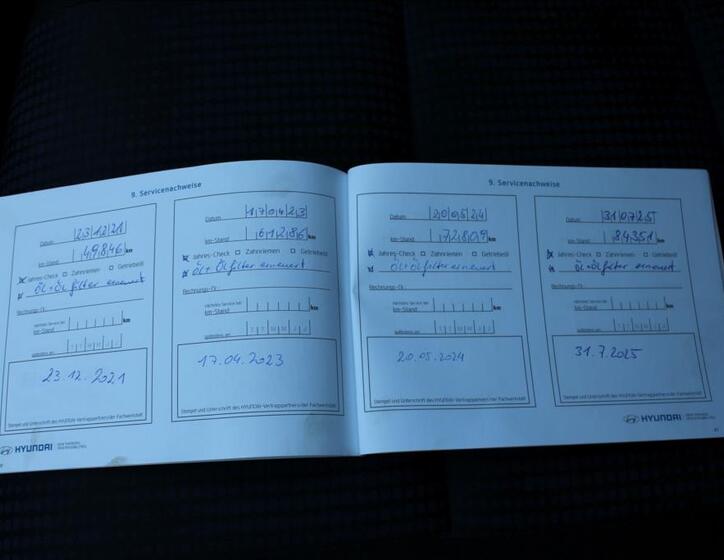 9. Servicenachweise
Datum 23 12 21
km-Stand 49846 km
Jahres-Check Zahnriemen Getriebeöl
Öl + Öl filter erneuert
Rechnungs-Nr.
nächster Service bei
km-Stand km
spätestens am T T M M J J
23.12.2021
Stempel und Unterschrift des HYUNDAI-Vertragspartners/der Fachwerkstatt
HYUNDAI
Datum 17 04 23
km-Stand 61286 km
Jahres-Check Zahnriemen Getriebeöl
Öl + Öl filter erneuert
Rechnungs-Nr.
nächster Service bei
km-Stand km
spätestens am T T M M J J
17.04.2023
Stempel und Unterschrift des HYUNDAI-Vertragspartners/der Fachwerkstatt
9. Servicenachweise
Datum 20 05 24
km-Stand 72809 km
Jahres-Check Zahnriemen Getriebeöl
Öl + Öl filter erneuert
Rechnungs-Nr.
nächster Service bei
km-Stand km
spätestens am T T M M J J
20.05.2024
Stempel und Unterschrift des HYUNDAI-Vertragspartners/der Fachwerkstatt
Datum 31 07 25
km-Stand 84351 km
Jahres-Check Zahnriemen Getriebeöl
Öl + Öl filter erneuert
Rechnungs-Nr.
nächster Service bei
km-Stand km
spätestens am T T M M J J
31.7.2025
Stempel und Unterschrift des HYUNDAI-Vertragspartners/der Fachwerkstatt
HYUNDAI